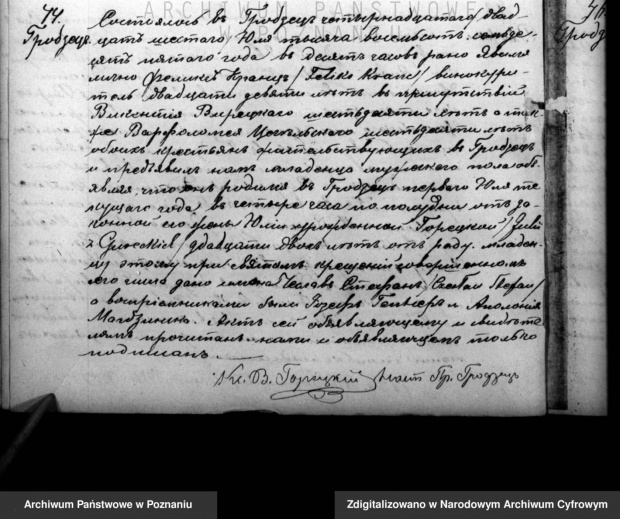 ARCHIWUM PAŃSTWOWE
44.
Гродзецъ.
Состоялось въ Гродзецъ четырнадцатаго /двад-
цать шестаго Юля тысяча восемьсотъ
пятаго года въ десять часовъ рано. Явился
лично Феликсъ Кранцъ /Feliks Kranc/ винокури-
тель двадцати девяти лѣтъ въ присутствіи
Викентія шестьдесяти лѣтъ а так-
же Варфоломея шестьдесяти лѣтъ
обоихъ крестьянъ жительствующихъ въ Гродзецъ
и предъявилъ намъ младенца мужескаго пола объ-
являя, что онъ родился въ Гродзецъ перваго Юля те-
кущаго года въ четыре часа по полудни отъ за-
конной его жены Юліи урожденной Горецкой /Julii
z Goreckich/ двадцати двохъ лѣтъ отъ роду. Младен-
цу этому при святомъ крещеніи совершенномъ
сего числа дано имена Чеславъ Стефанъ /Czesław Stefan/
а воспріемниками были Іозефъ и Аполонія
Актъ сей объявляющему и свидѣте-
лямъ прочитанъ нами и объявляющимъ только
подписанъ.
Кс. В. Горицкій Наст. Пр. Гродзецъ
Гродзецъ
Archiwum Państwowe w Poznaniu
Zdigitalizowano w Narodowym Archiwum Cyfrowym